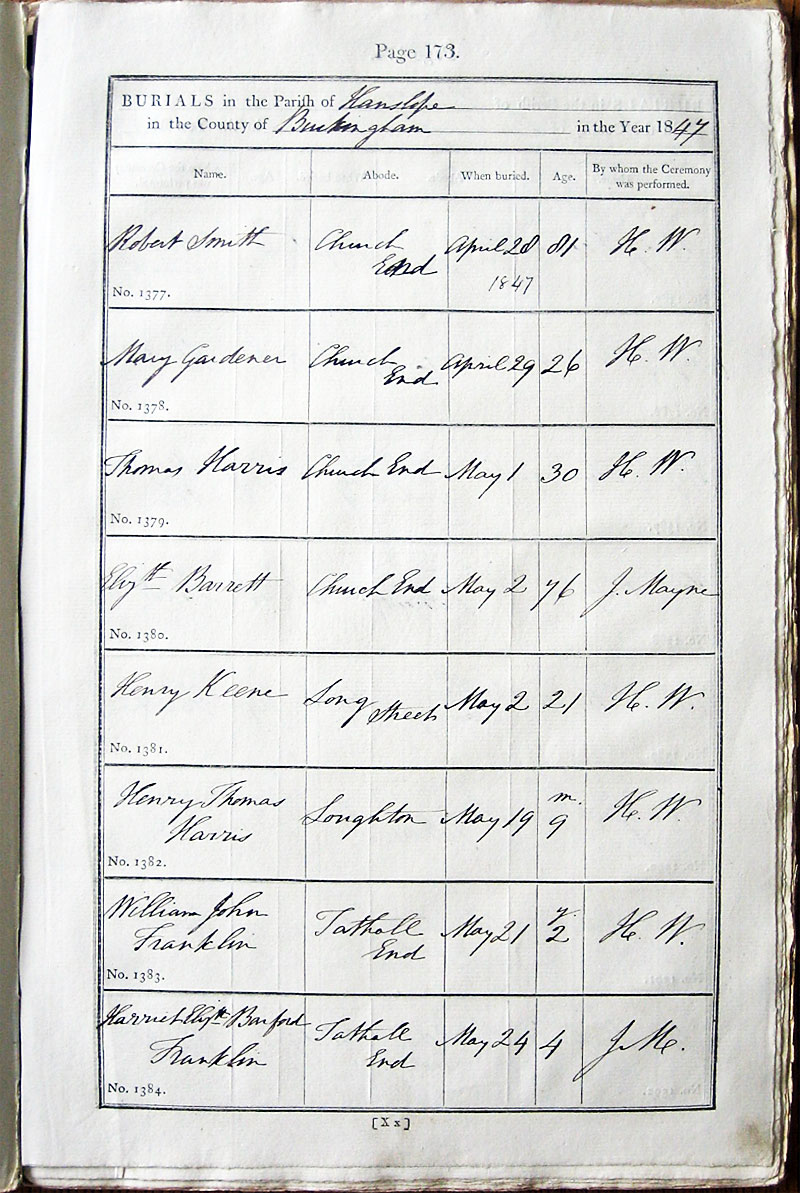 Page 173.
BURIALS in the Parish of Hanslope
in the County of Buckingham in the Year 1847
Name. Abode. When buried. Age. By whom the Ceremony was performed.
Robert Smith Church End April 28 1847 81 H. W.
No. 1377.
Mary Gardener Church End April 29 26 H. W.
No. 1378.
Thomas Harris Church End May 1 30 H. W.
No. 1379.
Elizth Barrett Church End May 2 76 J. Mayne
No. 1380.
Henry Keene Long Street May 2 21 H. W.
No. 1381.
Henry Thomas Harris Loughton May 19 m. 9 H. W.
No. 1382.
William John Franklin Tathall End May 21 y. 2 H. W.
No. 1383.
Harriet Elizth Barford Franklin Tathall End May 24 4 J. M.
No. 1384.
[Xx]